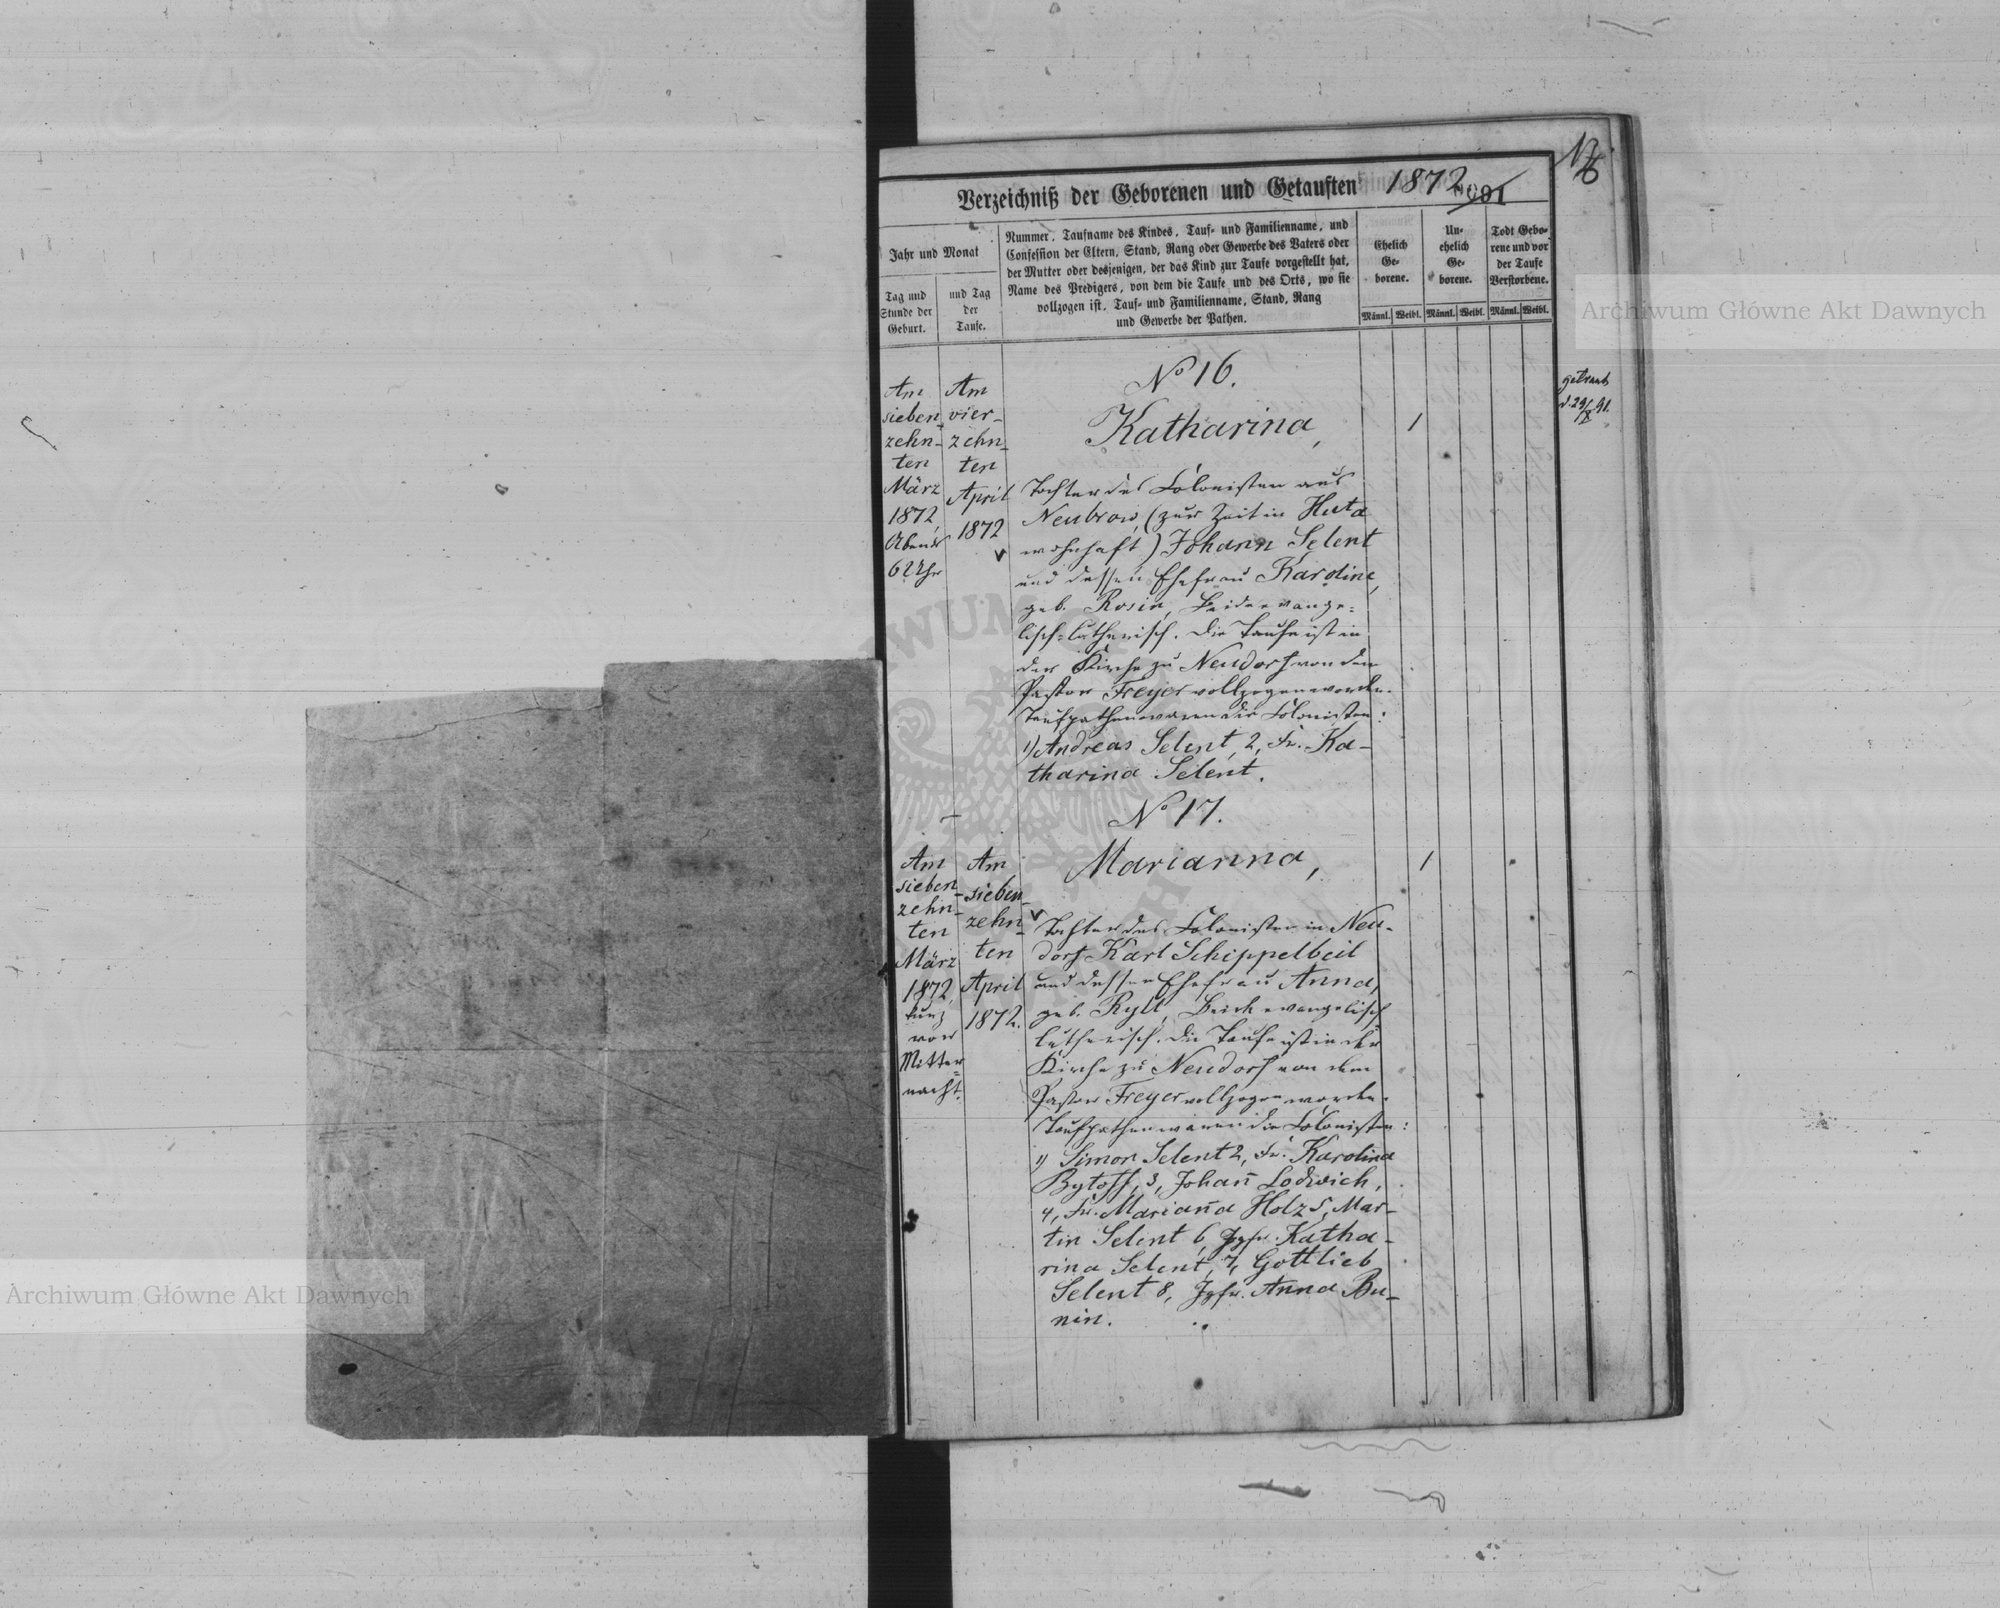 Verzeichniß der Geborenen und Getauften 1872
Jahr und Monat
Tag und
Stunde der
Geburt.
und Tag
der
Taufe.
Nummer. Taufname des Kindes, Tauf- und Familienname, und
Confession der Eltern, Stand, Rang oder Gewerbe des Vaters oder
der Mutter oder desjenigen, der das Kind zur Taufe vorgestellt hat,
Name des Predigers, von dem die Taufe und des Orts, wo sie
vollzogen ist. Tauf- und Familienname, Stand, Rang
und Gewerbe der Pathen.
Ehelich
Ge-
borene.
Un-
ehelich
Ge-
borene.
Todt Gebo-
rene und vor
der Taufe
Verstorbene.
Männl. Weibl. Männl. Weibl. Männl. Weibl.
Am
sieben-
zehn-
ten
März
1872,
Abends
6 Uhr
Am
vier-
zehn-
ten
April
1872
No 16.
Katharina,
1
getraut
d. 29/X 91.
Tochter des Colonisten aus
Neubrow, (zur Zeit in Huta
wohnhaft) Johann Selent
und dessen Ehefrau Karoline,
geb. Rosin, Beide evange-
lisch-lutherisch. Die Taufe ist in
der Kirche zu Neudorf von dem
Pastor Freyer vollzogen worden.
Taufpathen waren die Colonisten:
1) Andreas Selent, 2, Fr. Ka-
tharina Selent.
No 17.
Am
sieben-
zehn-
ten
März
1872,
kurz
vor
Mitter-
nacht.
Am
sieben-
zehn-
ten
April
1872.
Marianna,
1
Tochter des Colonisten in Neu-
dorf Karl Schippelbeil
und dessen Ehefrau Anna,
geb. Ryll, Beide evangelisch
lutherisch. Die Taufe ist in der
Kirche zu Neudorf von dem
Pastor Freyer vollzogen worden.
Taufpathen waren die Colonisten:
1) Simon Selent 2, Fr. Karolina
Bytoff, 3, Johan̄ Lodwich,
4, Fr. Marian̄a Holz 5, Mar-
tin Selent 6, Jgfr. Katha-
rina Selent, 7, Gottlieb
Selent 8, Jgfr. Anna Bu-
nin.
Archiwum Główne Akt Dawnych
Archiwum Główne Akt Dawnych